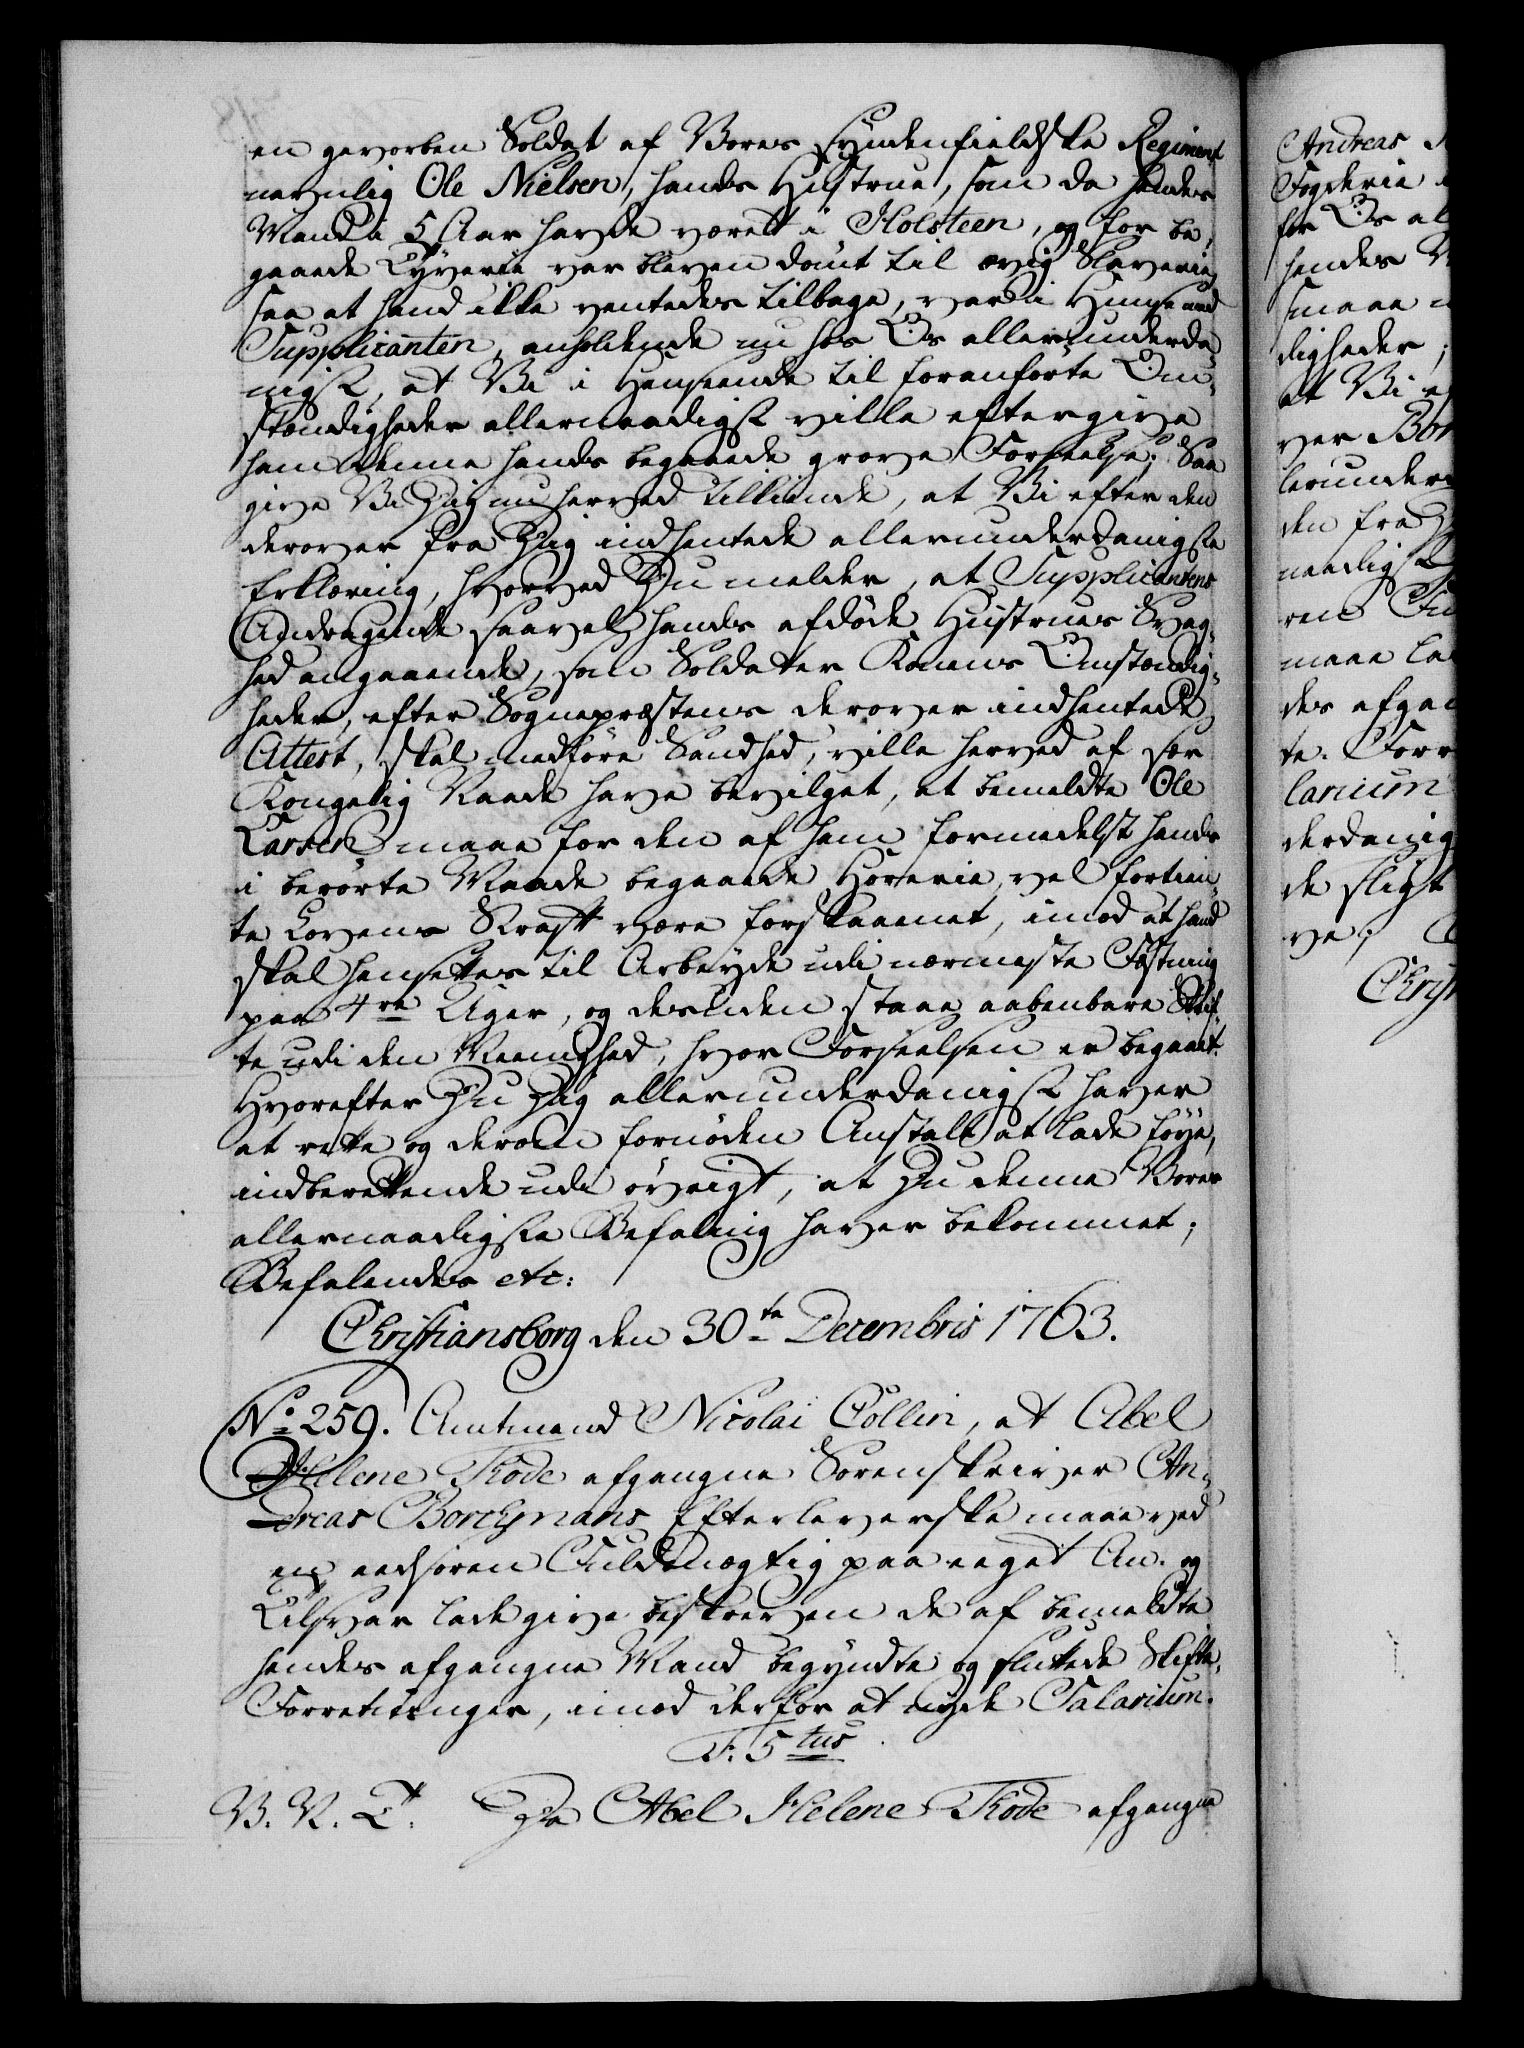 en gevorben Soldat af Vores syndenfieldske Regiment
navnlig Ole Nielsen, hands Hustrue, som da hendes
Mand i 5 Aar havde været i Holsteen, og for be-
gaaede Tyverie var bleven dömt til ævig Slaverie,
saa at hand ikke ventedes tilbage, var i Huuse med
Supplicanten, anholdende nu hos Os allerunderda-
nigst, at Vi i Henseende til foranförte Om-
stændigheder allernaadigst ville eftergive
ham denne hands begaaede grove Forseelse; Saa
give Vi Dig nu herved tilkiende, at Vi efter den
derover fra Dig indhentede allerunderdanigste
Erklæring, hvorved Du melder, at Supplicantens
Andragende saavel hands afdöde Hustrues Svag-
hed angaaende, som Soldater Konens Omstændig-
heder, efter Sognepræstens derover indhentede
Attest, skal medföre Sandhed, ville herved af sær
Kongelig Naade have bevilget, at bemeldte Ole
Larsen maae for den af ham formedelst hands
i berörte Maade begaaede Horerie, vel fortien-
te Lovens Straff være forskaanet, imod at hand
skal hensettes til Arbeyde udi nærmeste Fæstning
paa 4re Uger, og desuden staae aabenbare Skrif-
te udi den Meenighed, hvor Forseelsen er begaaet.
Hvorefter Du Dig allerunderdanigst haver
at rette og derom fornöden Anstalt at lade föye,
indberettende udi övrigt, at Du denne Vores
allernaadigste Befaling haver bekommet;
Befalendes etc:
Christiansborg den 30te Decembris 1763.
No 259. Amtmand Nicolai Collin, at Abel
Helene Tkode afgangne Sorenskriver An-
dreas Borchmans Efterleverske maae ved
en eedsoren Fuldmægtig paa eeget An- og
Tilsvar lade give beskreven de af bemeldte
hendes afgangne Mand begyndte og sluttede Skifte-
Forretninger, imod derfor at nyde Salarium.
F. 5tus
V. N. T. Da Abel Helene Tkode afgangne
Andreas
Fogderie
for Os al
hendes
smaae
digheder;
at Vi
ver Bor
lerunder
den fra
naadigst
ren
maae la
des afga
te. Forr
larium
derdanig
de sligt
ve;
Chris